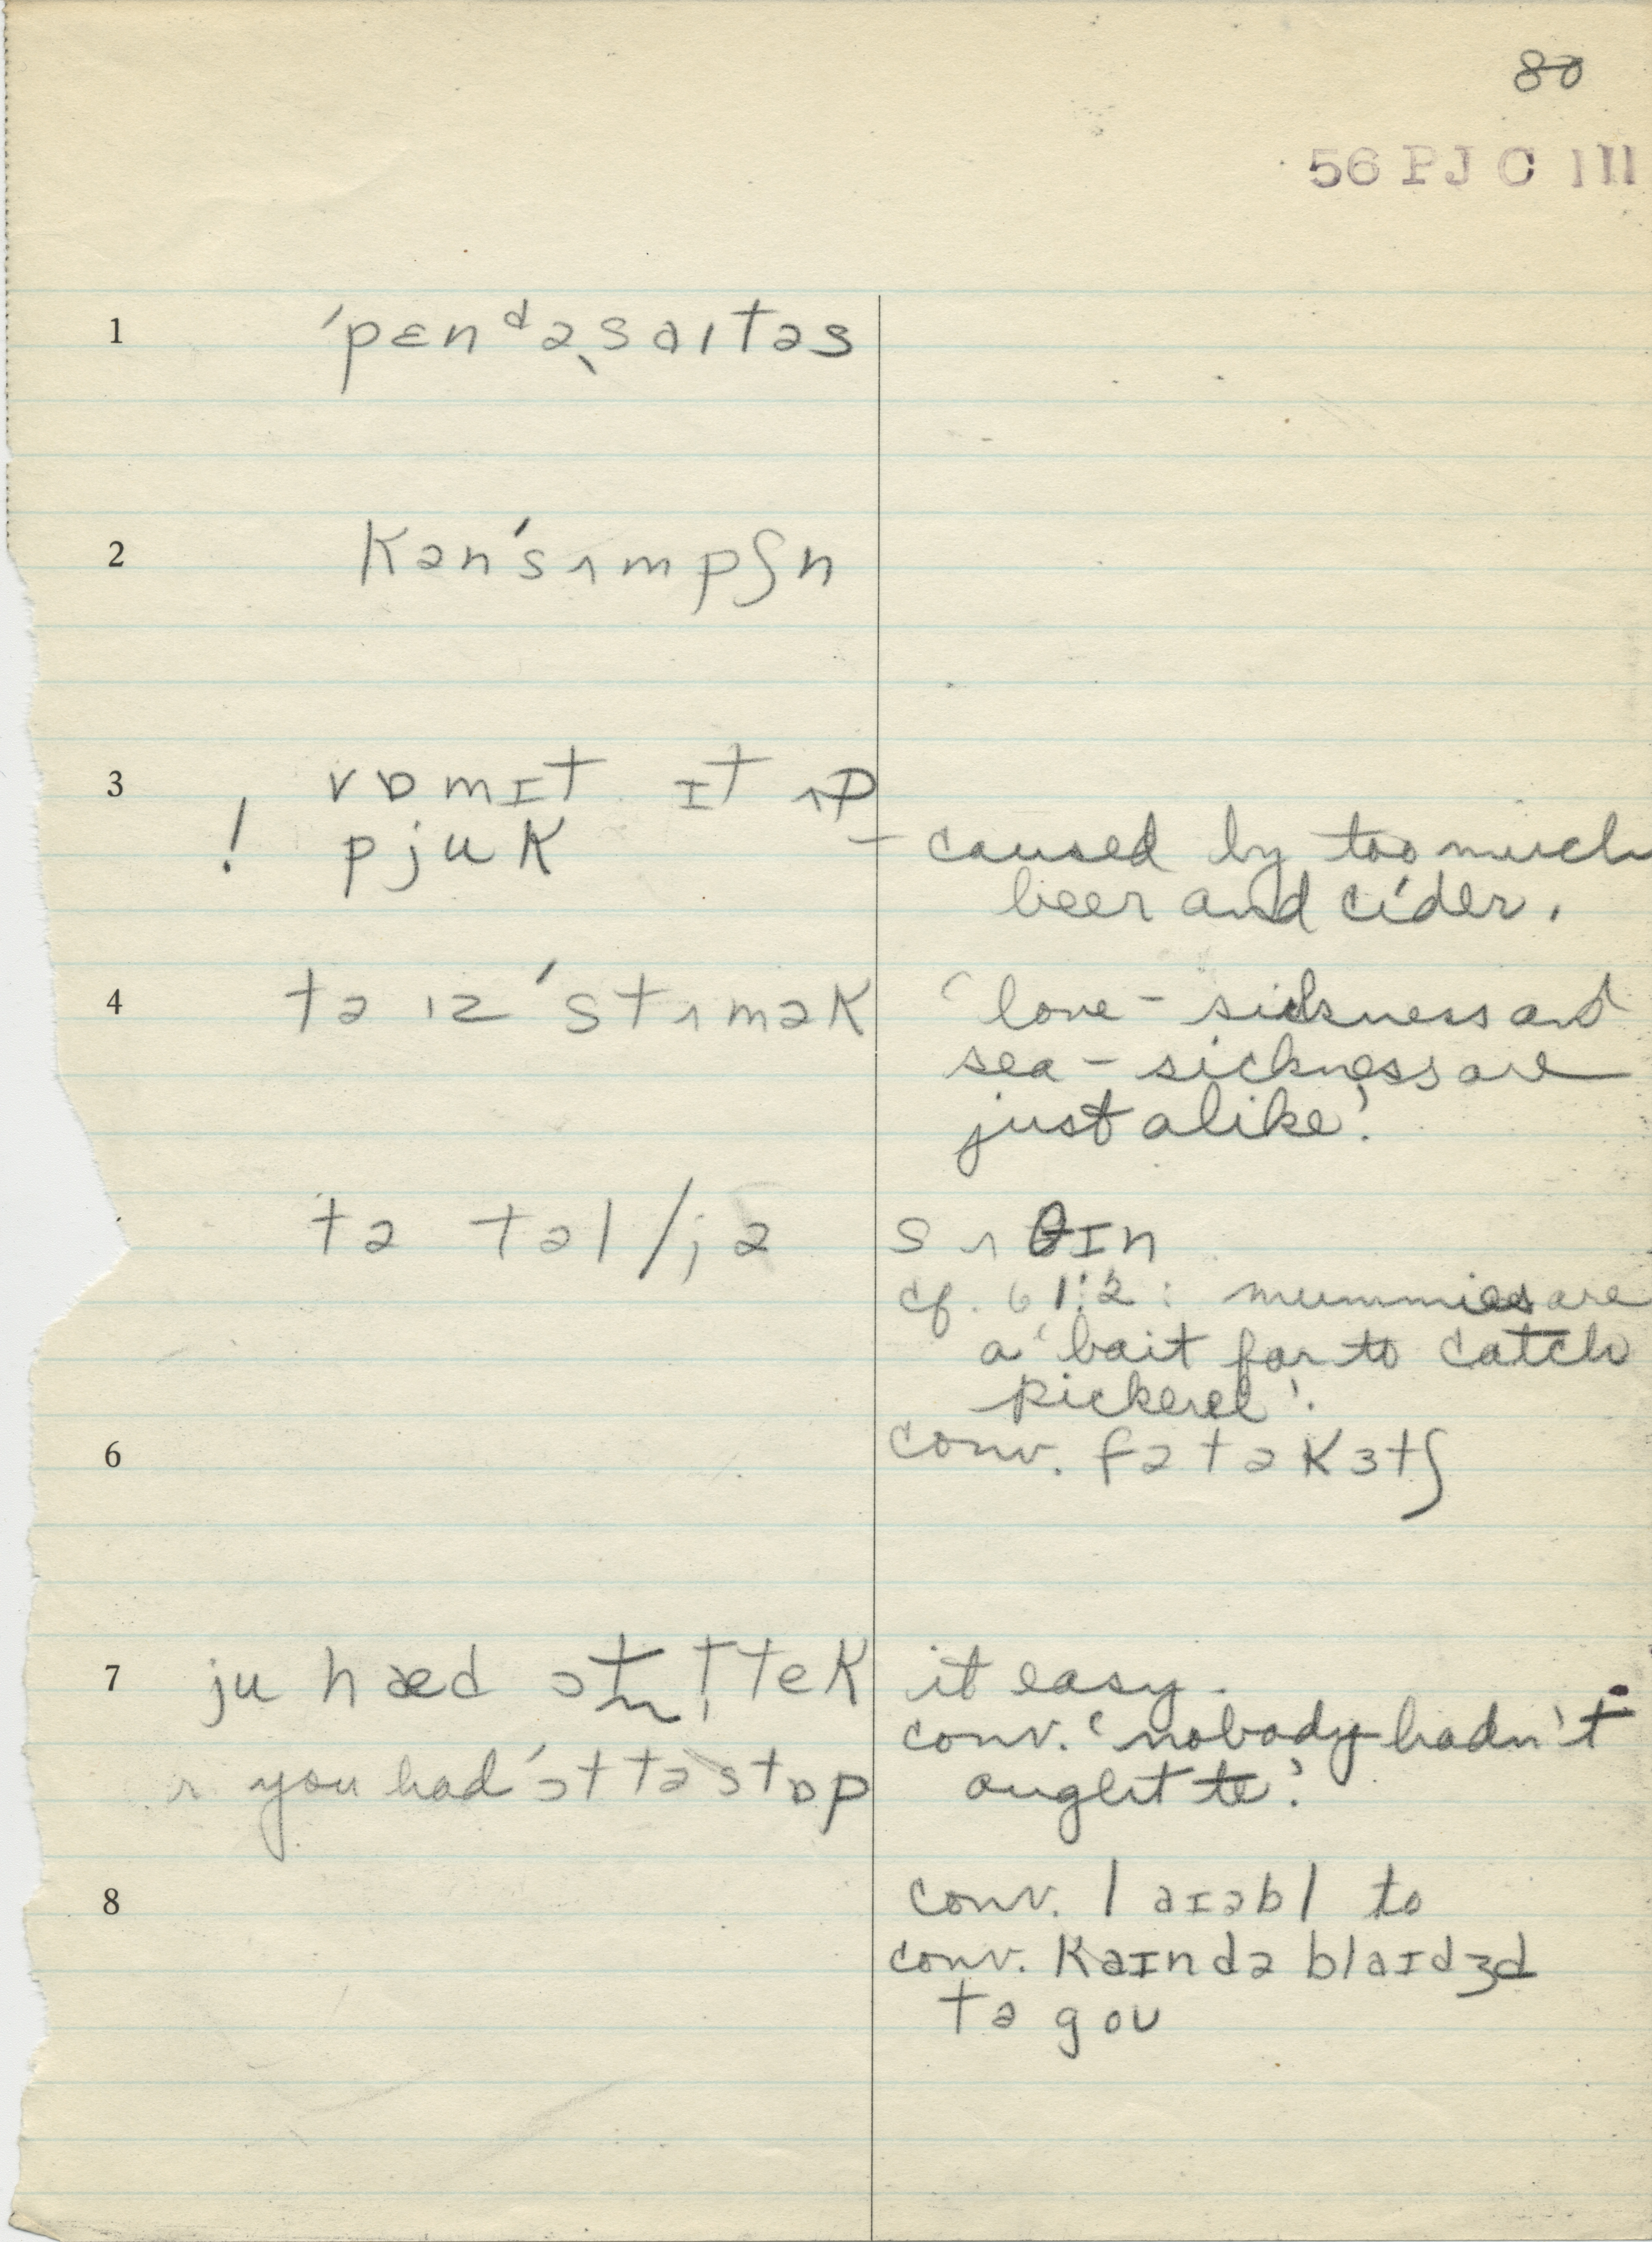 80
56 PJC 111
1 ˈpɛnᵈəˌsaɪtəs
2 kənˈsʌmpʃn
3 vɒmɪt ɪt ʌp
! pjuk – caused by too much
beer and cider.
4 tə ɪz ˈstʌmək 'love-sickness and
sea-sickness are
just alike'.
tə təl/jə sʌθɪn
cf. 61:2: mummies are
a 'bait for to catch
pickerel'.
6 conv. fətəkɜtʃ
7 ju hæd ɔt tek it easy.
conv. 'nobody hadn't
you had ˈɔt tə stɒp ought to'.
8 conv. laɪəbl to
conv. kaɪndə blaɪdʒd
tə goʊ